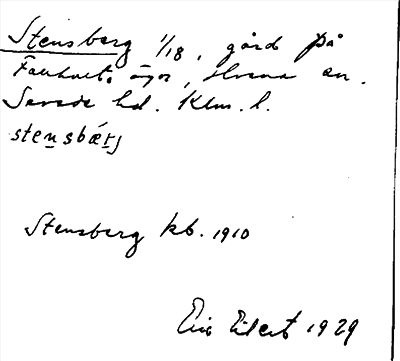 Stensberg 1/18, gård på
Fauhults ägor, Hvena sn.
Sevede hd. Klm. l.
stensbærj
Stensberg kb. 1910
Eric Elert 1929